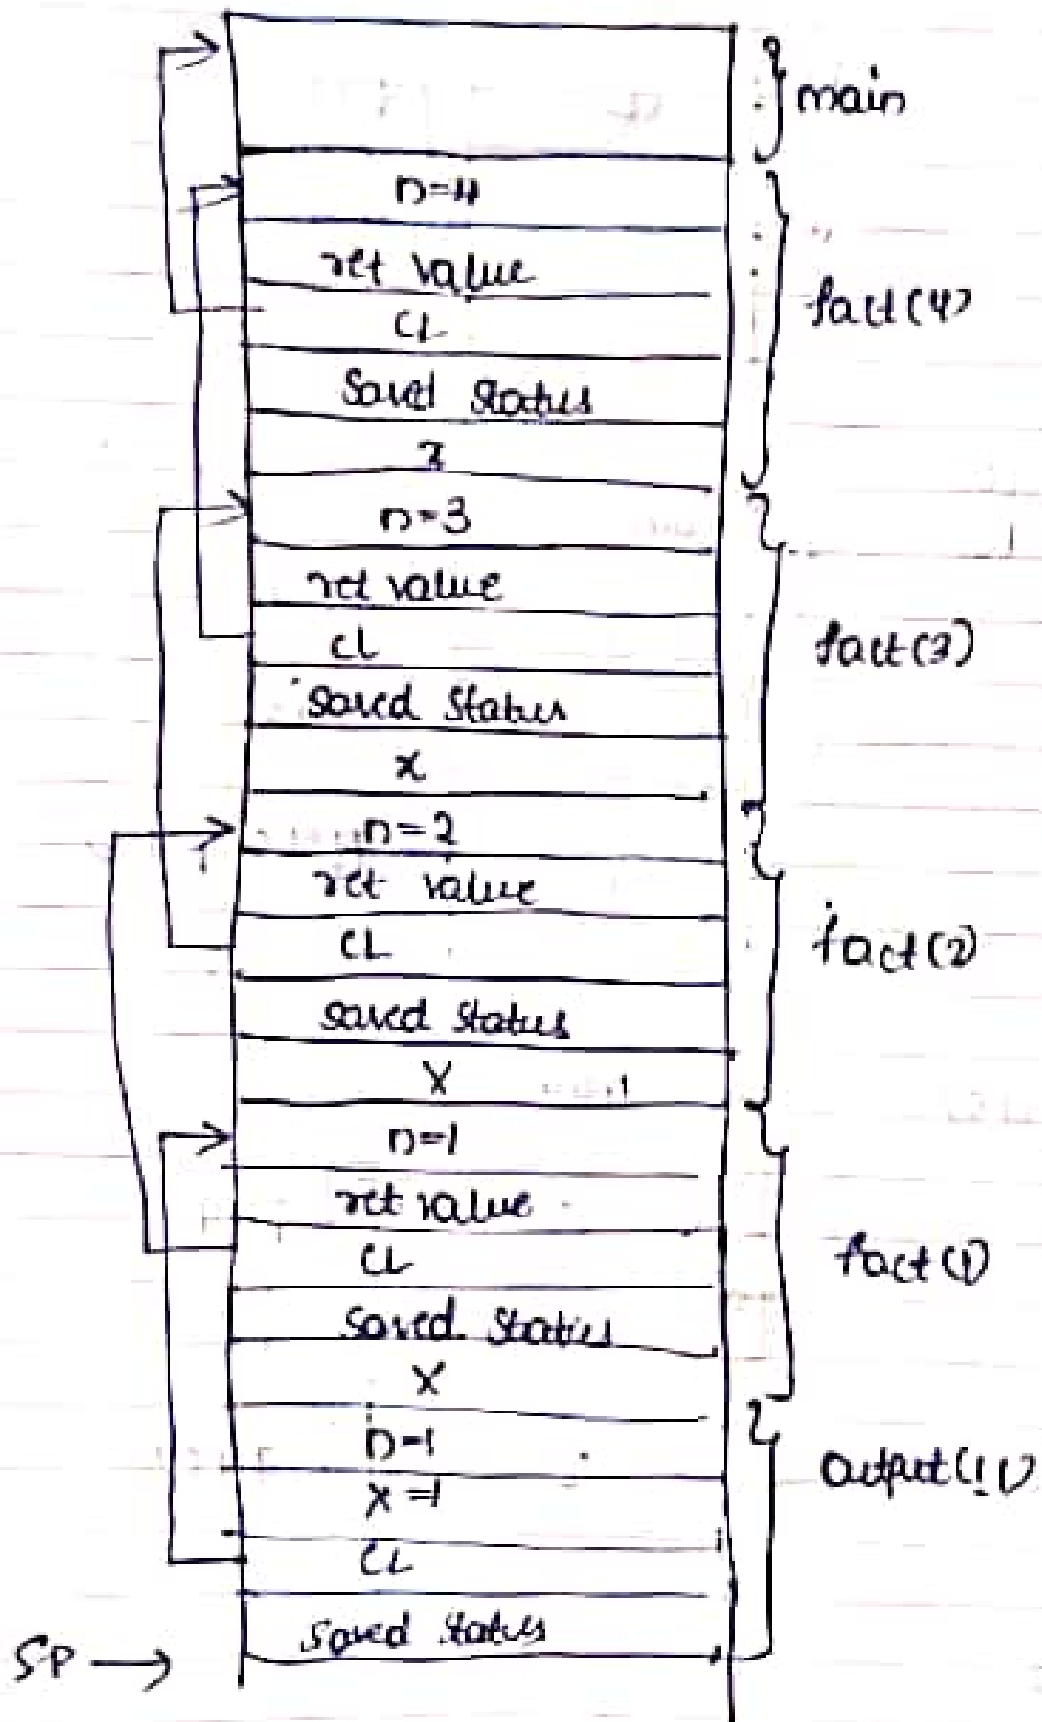 main
n=4
ret value
CL
Saved Status
fact(4)
n=3
ret value
CL
saved Status
x
fact(3)
n=2
ret value
CL
saved status
X
fact(2)
n=1
ret value
CL
saved status
X
fact(1)
n=1
X=1
CL
saved status
output(1,1)
SP